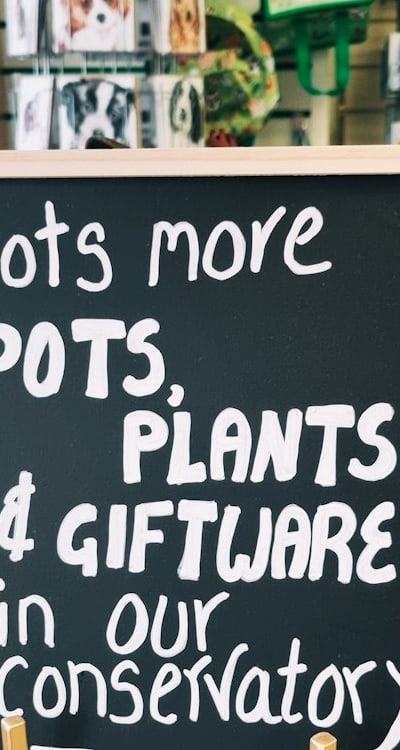 ots more
POTS,
PLANTS
& GIFTWARE
in our
conservatory